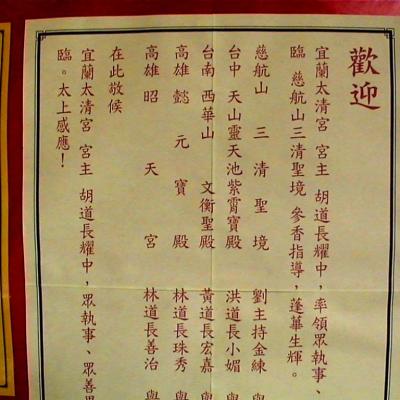 歡迎
宜蘭太清宮 宮主 胡道長耀中，率領眾執事、
臨 慈航山三清聖境 參香指導，蓬蓽生輝。
慈航山 三清聖境 劉主持金練 與
台中 天山靈天池紫霄寶殿 洪道長小媚 與
台南 西華山 文衡聖殿 黃道長宏嘉 與
高雄 懿元寶殿 林道長珠秀 與
高雄 昭天宮 林道長善治 與
在此敬候
宜蘭太清宮 宮主 胡道長耀中，眾執事、眾善
臨。太上感應！